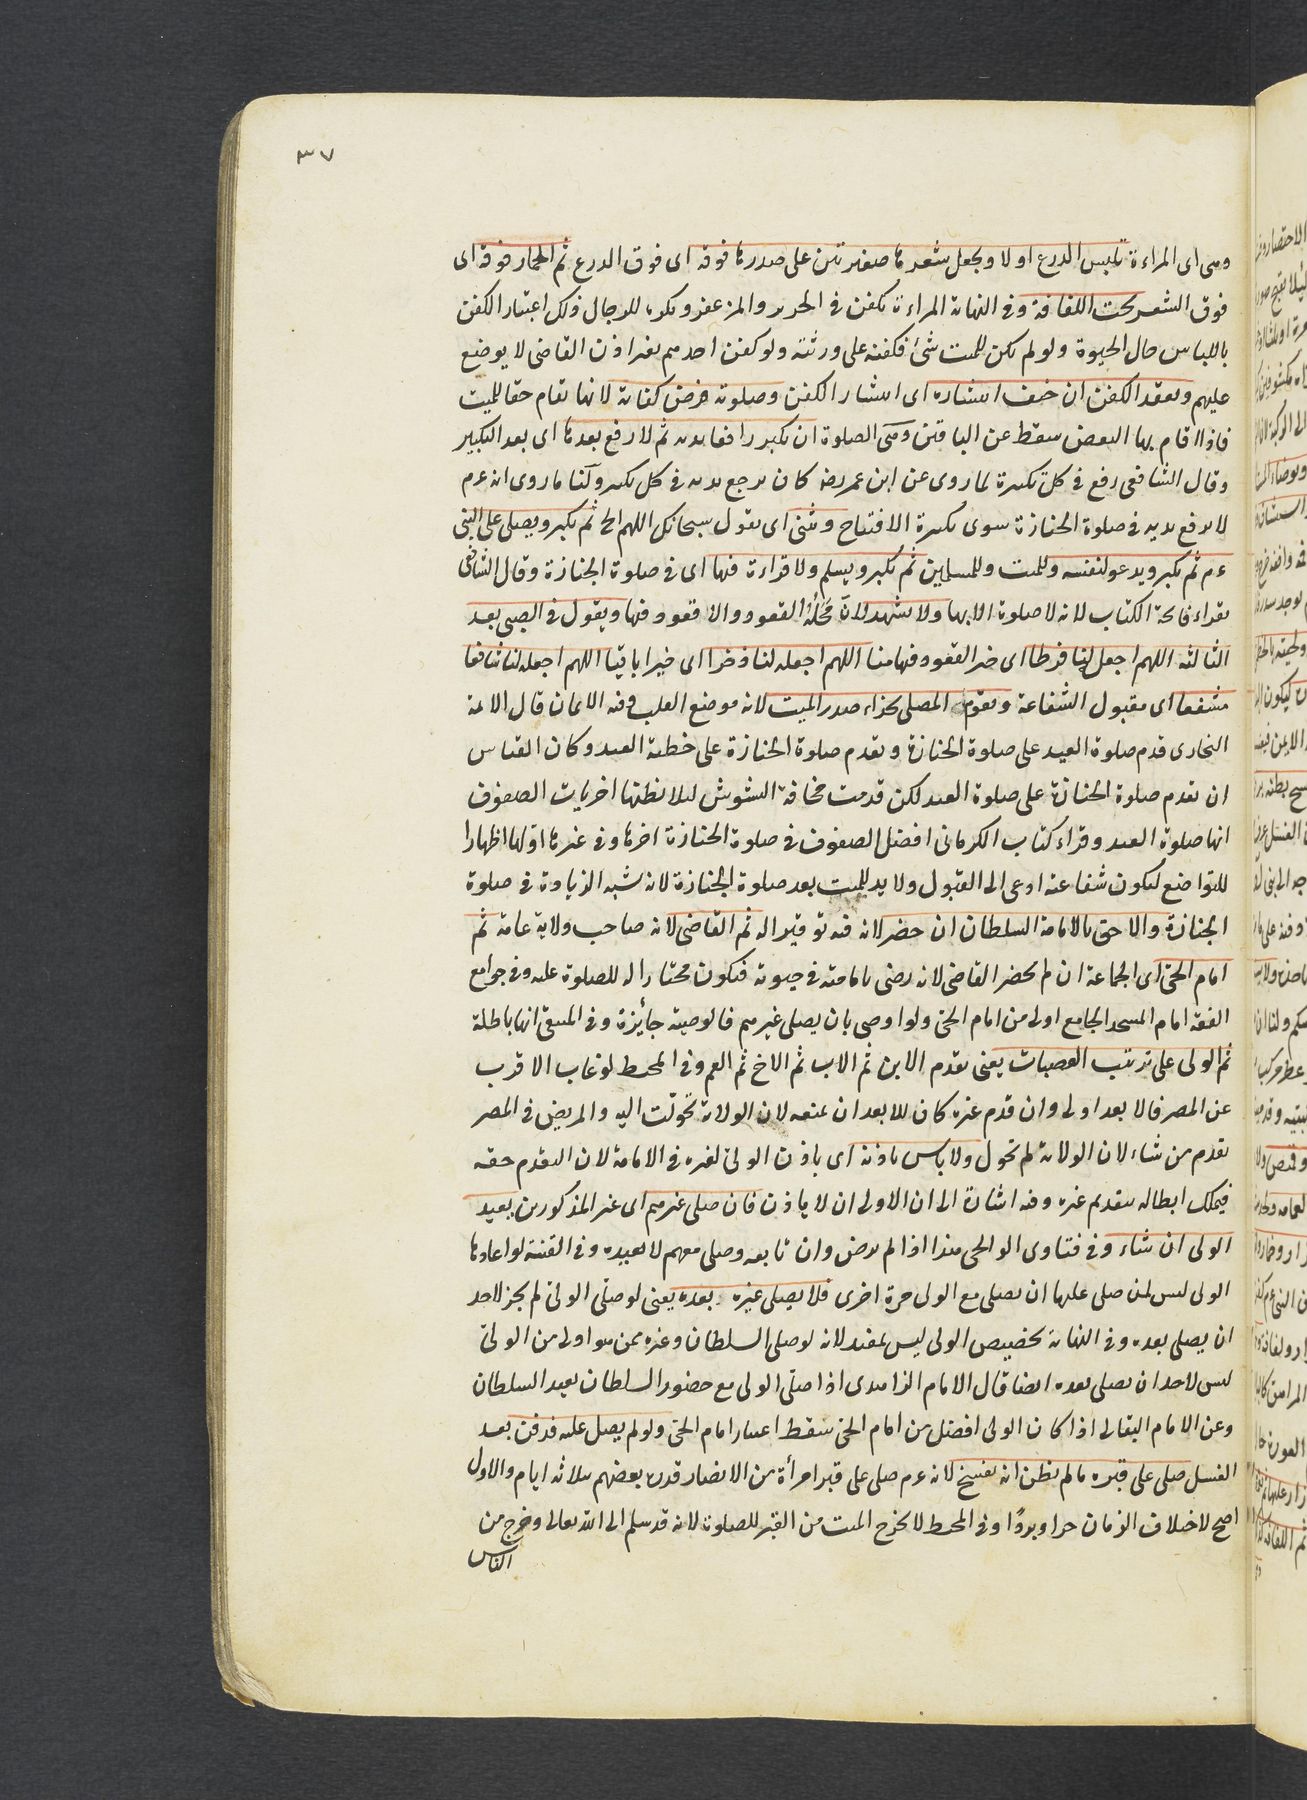 ٣٧
وهى اى المراءة تلبس الدرع اولا ويجعل شعرها صفيرتين على صدرها فوقه اى فوق الدرع ثم الخمار فوقه اى
فوق الشعر تحت اللفافة وفى النهاية المراءة تكفن فى الحرير والمزعفر ويكره للرجال ذلك اعتبار الكفن
باللباس حال الحيوة ولو لم يكن للميت شئ فكفنه على ورثته ولو كفن احدهم بغير اذن القاضى لا يوضع
عليهم ويعقد الكفن ان خيف انتشاره اى انتشار الكفن وصلوته فرض كفاية لانها تقام حقا للميت
فاذا اقام بها البعض سقط عن الباقين وهى الصلوة ان يكبر رافعا يديه ثم لا رفع بعدها اى بعد التكبير
وقال الشافعى رفع فى كل تكبيرة لما روى عن ابن عمر رضه كان يرجع يديه فى كل تكبير ولنا ما روى انه عم
لا يرفع يديه فى صلوة الجنازة سوى تكبيرة الافتتاح وثنى اى يقول سبحانك اللهم الخ ثم يكبر ويصلى على النبى
عم ثم يكبر ويدعو لنفسه وللميت وللمسلمين ثم يكبر ويسلم ولا قراءة فيها اى فى صلوة الجنازة وقال الشافعى
يقراء فاتحة الكتاب لانه لا صلوة الا بها ولا تشهد لان محله القعود ولا قعود فيها ويقول فى الصبى بعد
الثالثة اللهم اجعل لنا فرطا اى خير القعود فيها منا اللهم اجعله لنا ذخرا اى خيرا باقيا اللهم اجعله لنا شافعا
مشفعا اى مقبول الشفاعة ويقوم المصلى بحذاء صدر الميت لانه موضع القلب وفيه الايمان قال الائمة
البخارى قدم صلوة العيد على صلوة الجنازة ويقدم صلوة الجنازة على خطبة العيد وكان القياس
ان يقدم صلوة الجنازة على صلوة العيد لكن قدمت مخافة التشويش لئلا يظنها اخريات الصفوف
انها صلوة العيد وقراء كتاب الكرمانى افضل الصفوف فى صلوة الجنازة اخرها وفى غيرها اولها اظهارا
للتواضع ليكون شفاعته ادعى الى القبول ولا يد للميت بعد صلوة الجنازة لانه شبه الزيادة فى صلوة
الجنازة والاحق بالامامة السلطان ان حضر لانه فيه توقير اله ثم القاضى لانه صاحب ولاية عامة ثم
امام الحى اى الجماعة ان لم يحضر القاضى لانه رضى بامامته فى حيوته فيكون مختارا له للصلوة عليه وفى جوامع
الفقه امام المسجد الجامع اولى من امام الحى ولو اوصى بان يصلى غيرهم فالوصية جائزة وفى المبتغى انها باطلة
ثم الولى على ترتيب العصبات يعنى يقدم الابن ثم الاب ثم الاخ ثم العم وفى المحيط لو غاب الاقرب
عن المصر فالابعد اولى وان قدم غيره كان للابعد ان يمنعه لان الولاية تحولت اليه والمريض فى المصر
يقدم من شاء لان الولاية لم تحول ولا باس باذنه اى باذن الولى لغيره فى الامامة لان التقدم حقه
فيملك ابطاله بتقديم غيره وفيه اشارة الى ان الاولى ان لا ياذن فان صلى غيرهم اى غير المذكورين يعيد
الولى ان شاء وفى فتاوى الوالجى هذا اذا لم يرض وان تابعه وصلى معهم لا يعيده وفى القنية لو اعادها
الولى ليس لمن صلى عليها ان يصلى مع الولى مرة اخرى فلا يصلى غيره بعده يعنى لو صلى الولى لم يجز لاحد
ان يصلى بعده وفى النهاية تخصيص الولى ليس بمفيد لانه لو صلى السلطان وغيره ممن هو اولى من الولى
ليس لاحد ان يصلى بعده ايضا قال الامام الزاهدى اذا صلى الولى مع حضور السلطان يعيد السلطان
وعن الامام البقالى اذا كان الولى افضل من امام الحى سقط اعتبار امام الحى ولو لم يصل عليه فدفن بعد
الغسل صلى على قبره ما لم يظن انه تفسخ لانه عم صلى على قبر امرأة من الانصار قدره بعضهم بثلاثة ايام والاول
اصح لاختلاف الزمان حرا وبردا وفى المحيط لا يخرج الميت من القبر للصلوة لانه قد سلم الى الله تعالى وخرج من
الناس